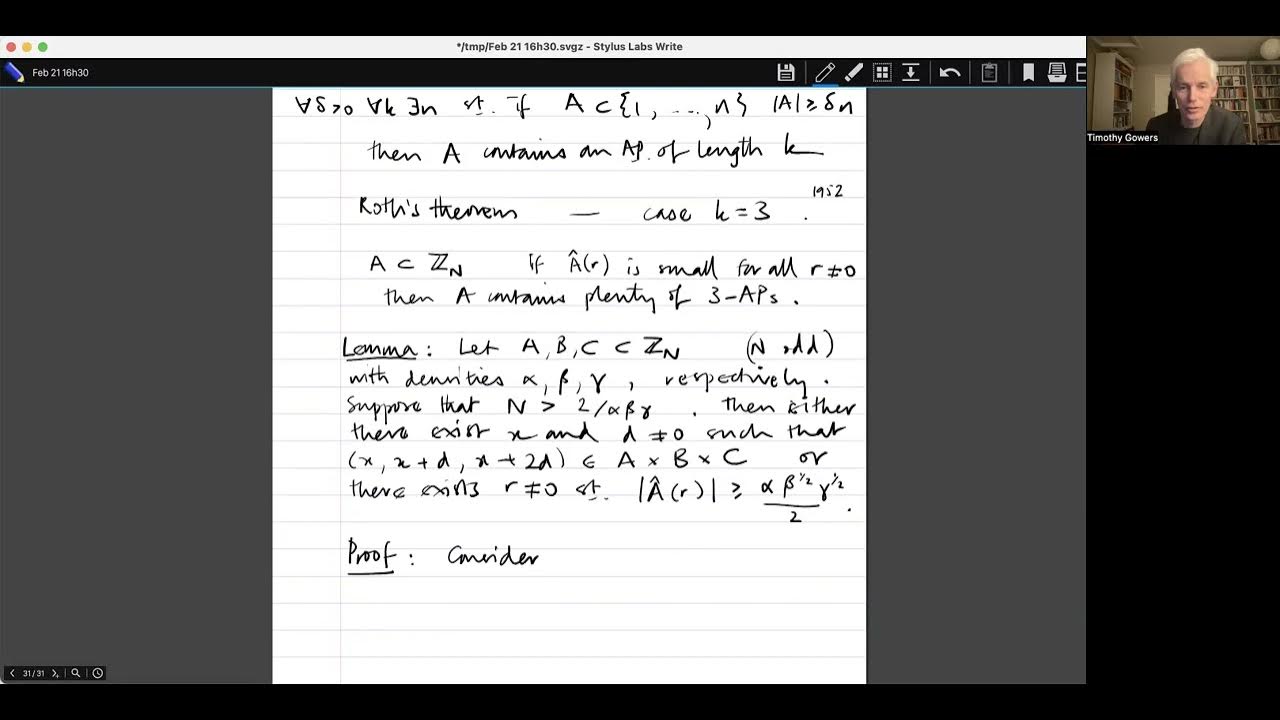 */tmp/Feb 21 16h30.svgz - Stylus Labs Write
Feb 21 16h30
∀δ>0 ∀k ∃n st. if A ⊂ {1, ..., n} |A| ≥ δn
then A contains an AP. of length k
Roth's theorem — case k=3 . 1952
A ⊂ ℤ_N If Â(r) is small for all r≠0
then A contains plenty of 3-APs.
Lemma: Let A, B, C ⊂ ℤ_N (N odd)
with densities α, β, γ, respectively.
Suppose that N > 2/αβγ . Then either
there exist x and d ≠ 0 such that
(x, x+d, x+2d) ∈ A × B × C or
there exists r≠0 st. |Â(r)| ≥ αβ^{1/2}γ^{1/2}/2 .
Proof: Consider
31/31
Timothy Gowers